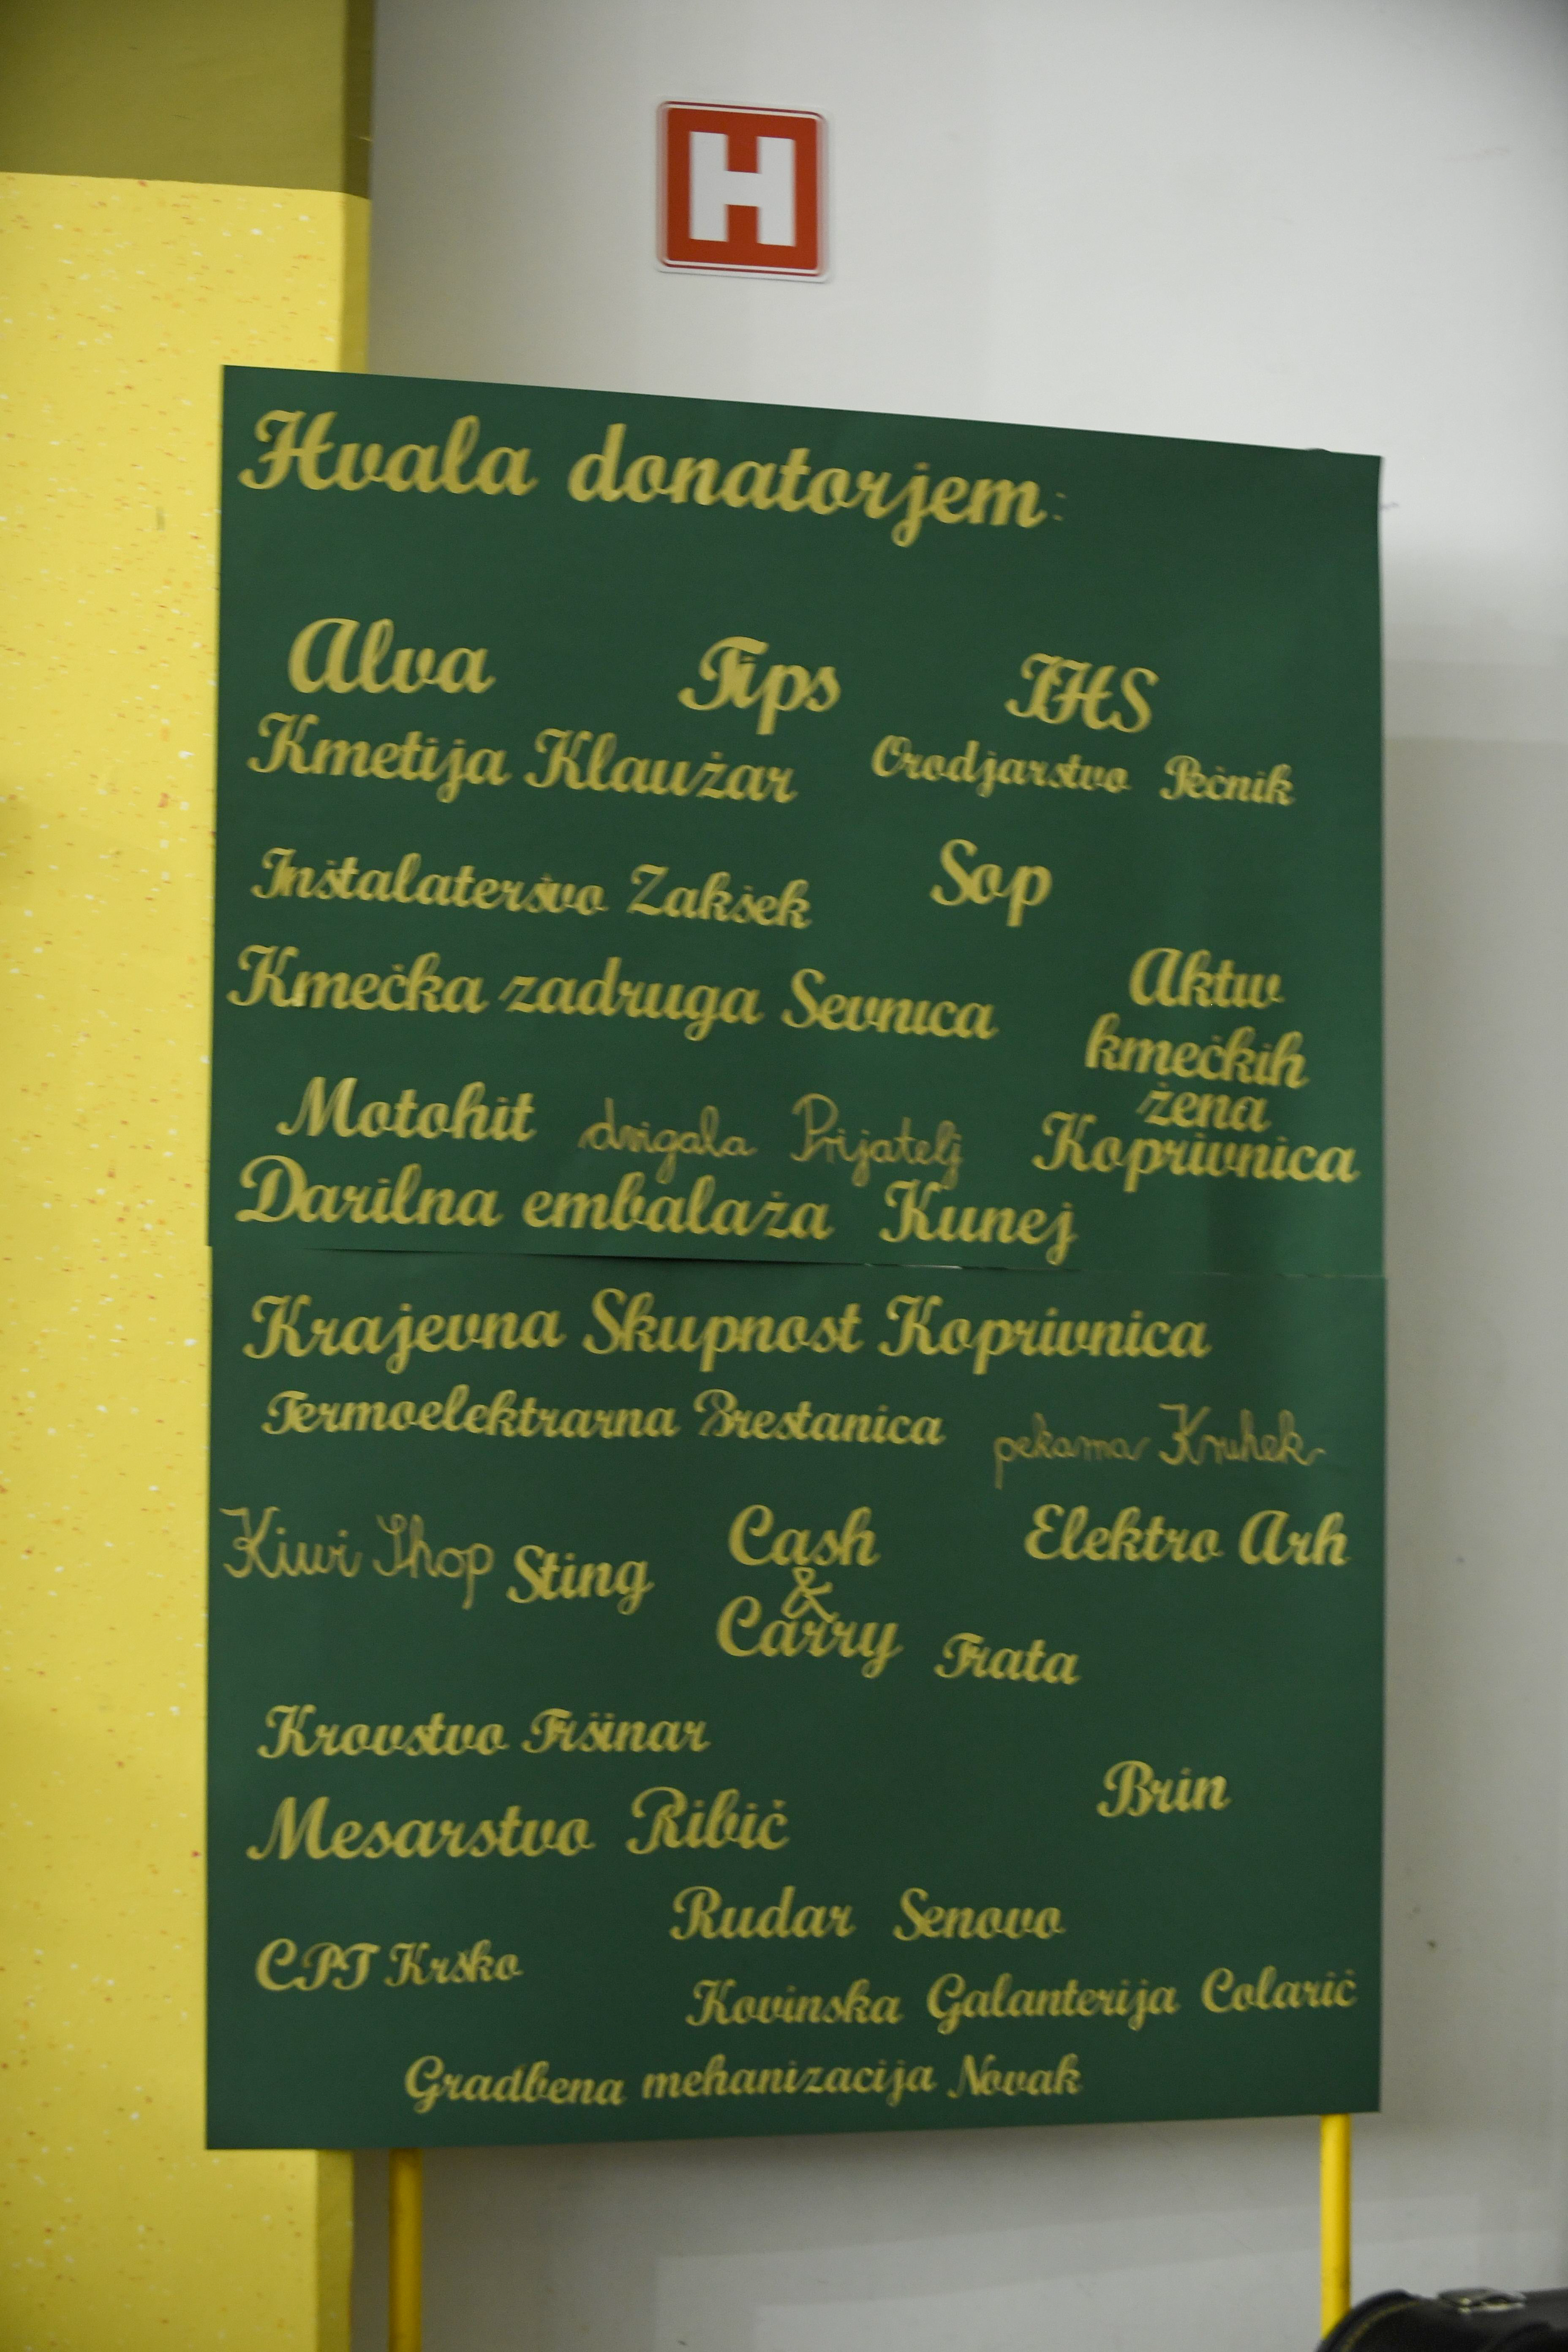 H
Hvala donatorjem:
Alva Tips IHS
Kmetija Klaužar Orodjarstvo Pečnik
Inštalaterśtvo Zakšek Sop
Kmečka zadruga Sevnica
Aktıv
kmečkih
žena
Koprivnica
Motohit drvigala Prijatelj
Darilna embalaža Kunej
Krajevna Skupnost Koprivnica
Termoelektrarna Brestanica pekarna Kruhek
Kiwi Shop Sting
Cash
&
Carry
Elektro Arh
Trata
Krovstvo Tršinar
Brin
Mesarstvo Ribič
Rudar Senovo
CPT Krško
Kovinska Galanterija Colarič
Gradbena mehanizacija Novak